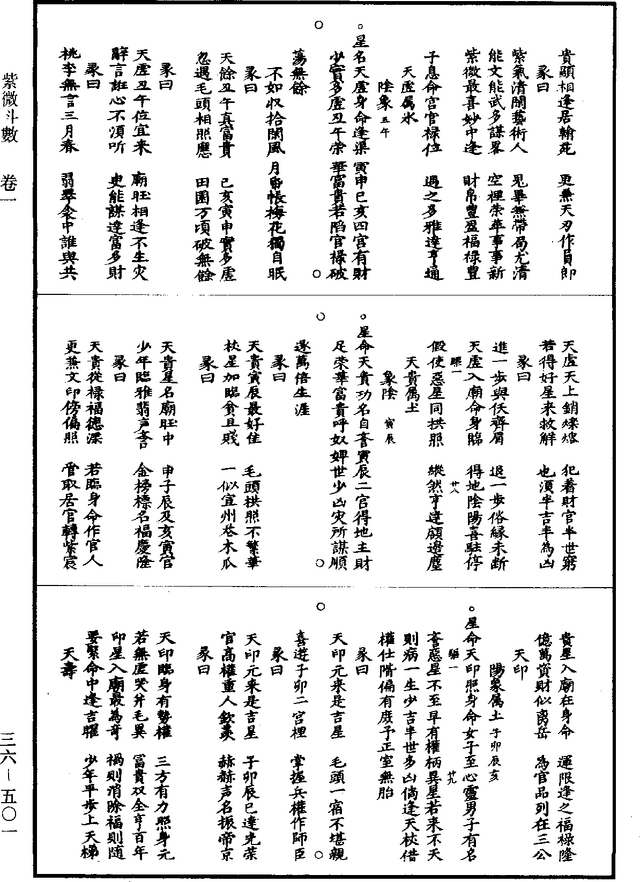 貴顯相逢居翰苑　更無天刃作員郎
彖曰
紫氣清閒藝術人　見畢無帶局尤清
能文能武多謀畧　空裡榮華事事新
紫微最喜妙中逢　財帛豐盈福祿豐
子息命宮官祿位　遇之多雅達亨通
天虛属水
陰象　五午
星名天虛身命逢渠　寅申巳亥四宮有財
少實多虛丑午榮　華富貴若陷官祿破
蕩無餘
彖曰
不如収拾閑風月　帋帳梅花獨自眠
天餘丑午真富貴　巳亥寅申實多虛
忽遇毛頭相照應　田園万頃破無餘
彖曰
天虛丑午位宜來　廟旺相逢不生灾
辭言誑心不須听　更能謀達富多財
彖曰
桃李無言三月春　翡翠衾中誰與共
紫微斗數　卷一
三六－五〇一
天虛天上銷爍熔　犯着財官半世窮
若得好星來救解　也須半吉半為凶
彖曰
進一步與仸齊眉　退一步俗緣未斷
天虛入廟命身臨　得地陰陽喜駐停
假使惡星同拱照　縱然亨達頗邅塵
天貴属土
象陰　寅辰
星命天貴功名自奮　寅辰二宮得地主財
足榮華富貴呼奴婢　世少凶灾所謀順
遂萬倍生涯
彖曰
天貴寅辰最好佳　毛頭拱照不繁華
杖星加臨貧且賤　一似宜州巷木瓜
彖曰
天貴星名廟旺中　申子辰及亥寅官
少年臨雅翡声吝　金榜標名福慶隆
彖曰
天貴從祿福德深　若臨身命作官人
更兼文印傍偏照　管取居官轉紫宸
貴星入廟在身命　運限逢之福祿隆
億萬資財似嵩岳　為官品列在三公
天印
陽象属土　子卯辰亥
星命天印照身命女子　至心靈男子有名
奮惡星不至早有權柄　異星若來不天
則病一生少吉半世多凶　倘逢天杖借
權仕階偏有庶子正室無胎
彖曰
天印元來是吉星　毛頭一宿不堪親
喜遊子卯二宮裡　掌握兵權作師臣
彖曰
天印元來是吉星　子卯辰巳達先荣
官高權重人欽羨　赫赫声名振帝京
彖曰
天印臨身有勢權　三方有力照身元
若無虛哭并毛異　冨貴双全亨百年
印星入廟最為奇　禍則消除福則随
要緊命中逢吉曜　少年平步上天梯
天壽